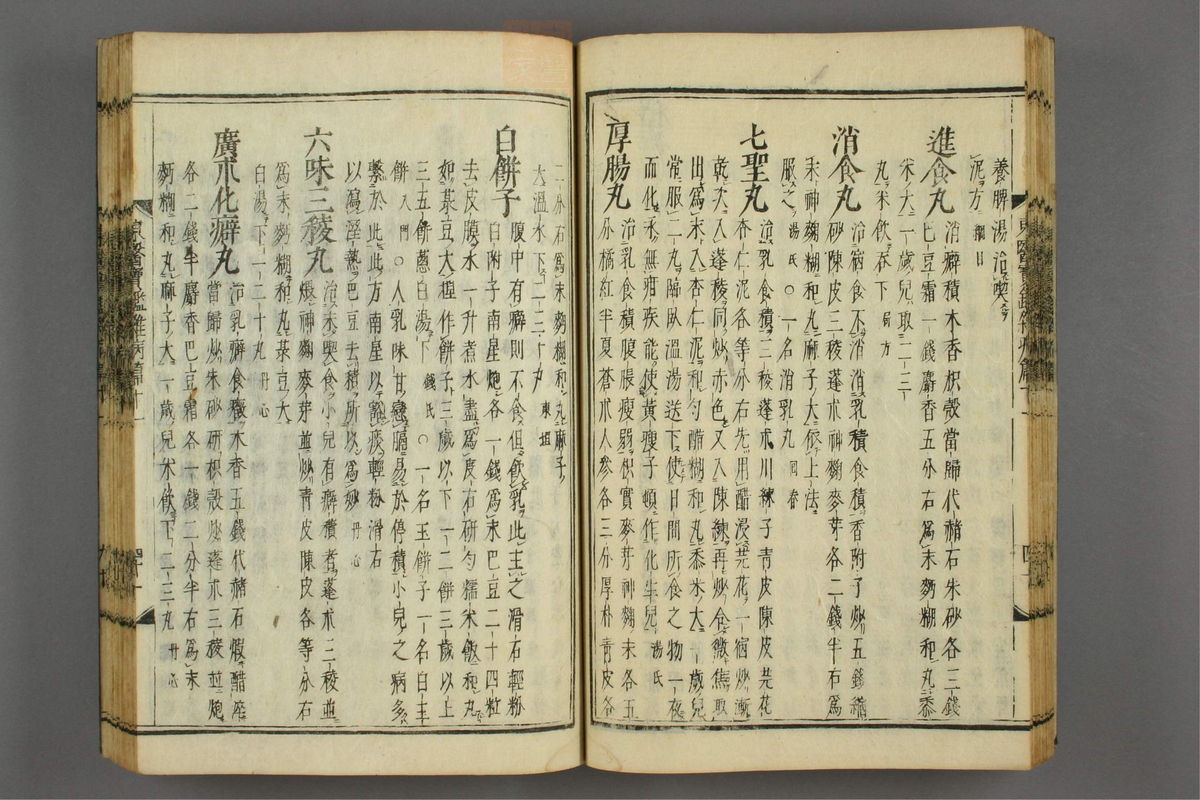 養脾湯 治喫
泥 方 綱目
進食丸 消癖積木香枳殼當歸代赭石朱砂各三錢
巴豆霜一錢麝香五分右爲末麪糊和丸黍
米大一歲兒取二三
丸米飲吞下 局方
消食丸 治宿食不消消乳積食積香附子炒五錢縮
砂陳皮三稜蓬朮神麴麥芽各二錢半右爲
末神麴糊和丸麻子大依上法
服之 湯氏 ○一名消乳丸 回春
七聖丸 治乳食積三稜蓬朮川楝子靑皮陳皮芫花
杏仁泥各等分右先用醋浸芫花一宿炒漸
乾次入蓬稜同炒赤色又入陳楝再炒令微焦取
出爲末入杏仁泥和勻醋糊和丸黍米大一歲兒
常服二丸臨臥溫湯送下使日間所食之物一夜
而化永無疳疾能使黃瘦子頓作化生兒 湯氏
厚腸丸 治乳食積腹脹瘦弱枳實麥芽神麴末各五
分橘紅半夏蒼朮人參各三分厚朴靑皮各
二分右爲末麪糊和丸麻子
大溫水下二三十丸 東垣
白餠子 腹中有癖則不食但飮乳此主之滑石輕粉
白附子南星炮各一錢爲末巴豆二十四粒
去皮膜水一升煮水盡爲度右硏勻糯米飯和丸
如菉豆大捏作餠子三歲以下一二餠三歲以上
三五餠葱白湯下 錢氏 ○一名玉餠子一名白玉
餠 入門 ○人乳味甘戀膈易於停積小兒之病多
繫於此此方南星以豁痰輕粉滑石
以瀉淫熱巴豆去積所以爲妙 丹心
六味三稜丸 治末喫食小兒有癖積者蓬朮三稜並
煨神麴麥芽並炒靑皮陳皮各等分右
爲末麪糊和丸菉豆大
白湯下一二十丸 丹心
廣朮化癖丸 治乳癖食癥木香五錢代赭石煆醋淬
當歸炒朱砂硏枳殼炒蓬朮三稜並炮
各二錢半麝香巴豆霜各一錢二分半右爲末
麪糊和丸麻子大一歲兒米飮下二三丸 丹心